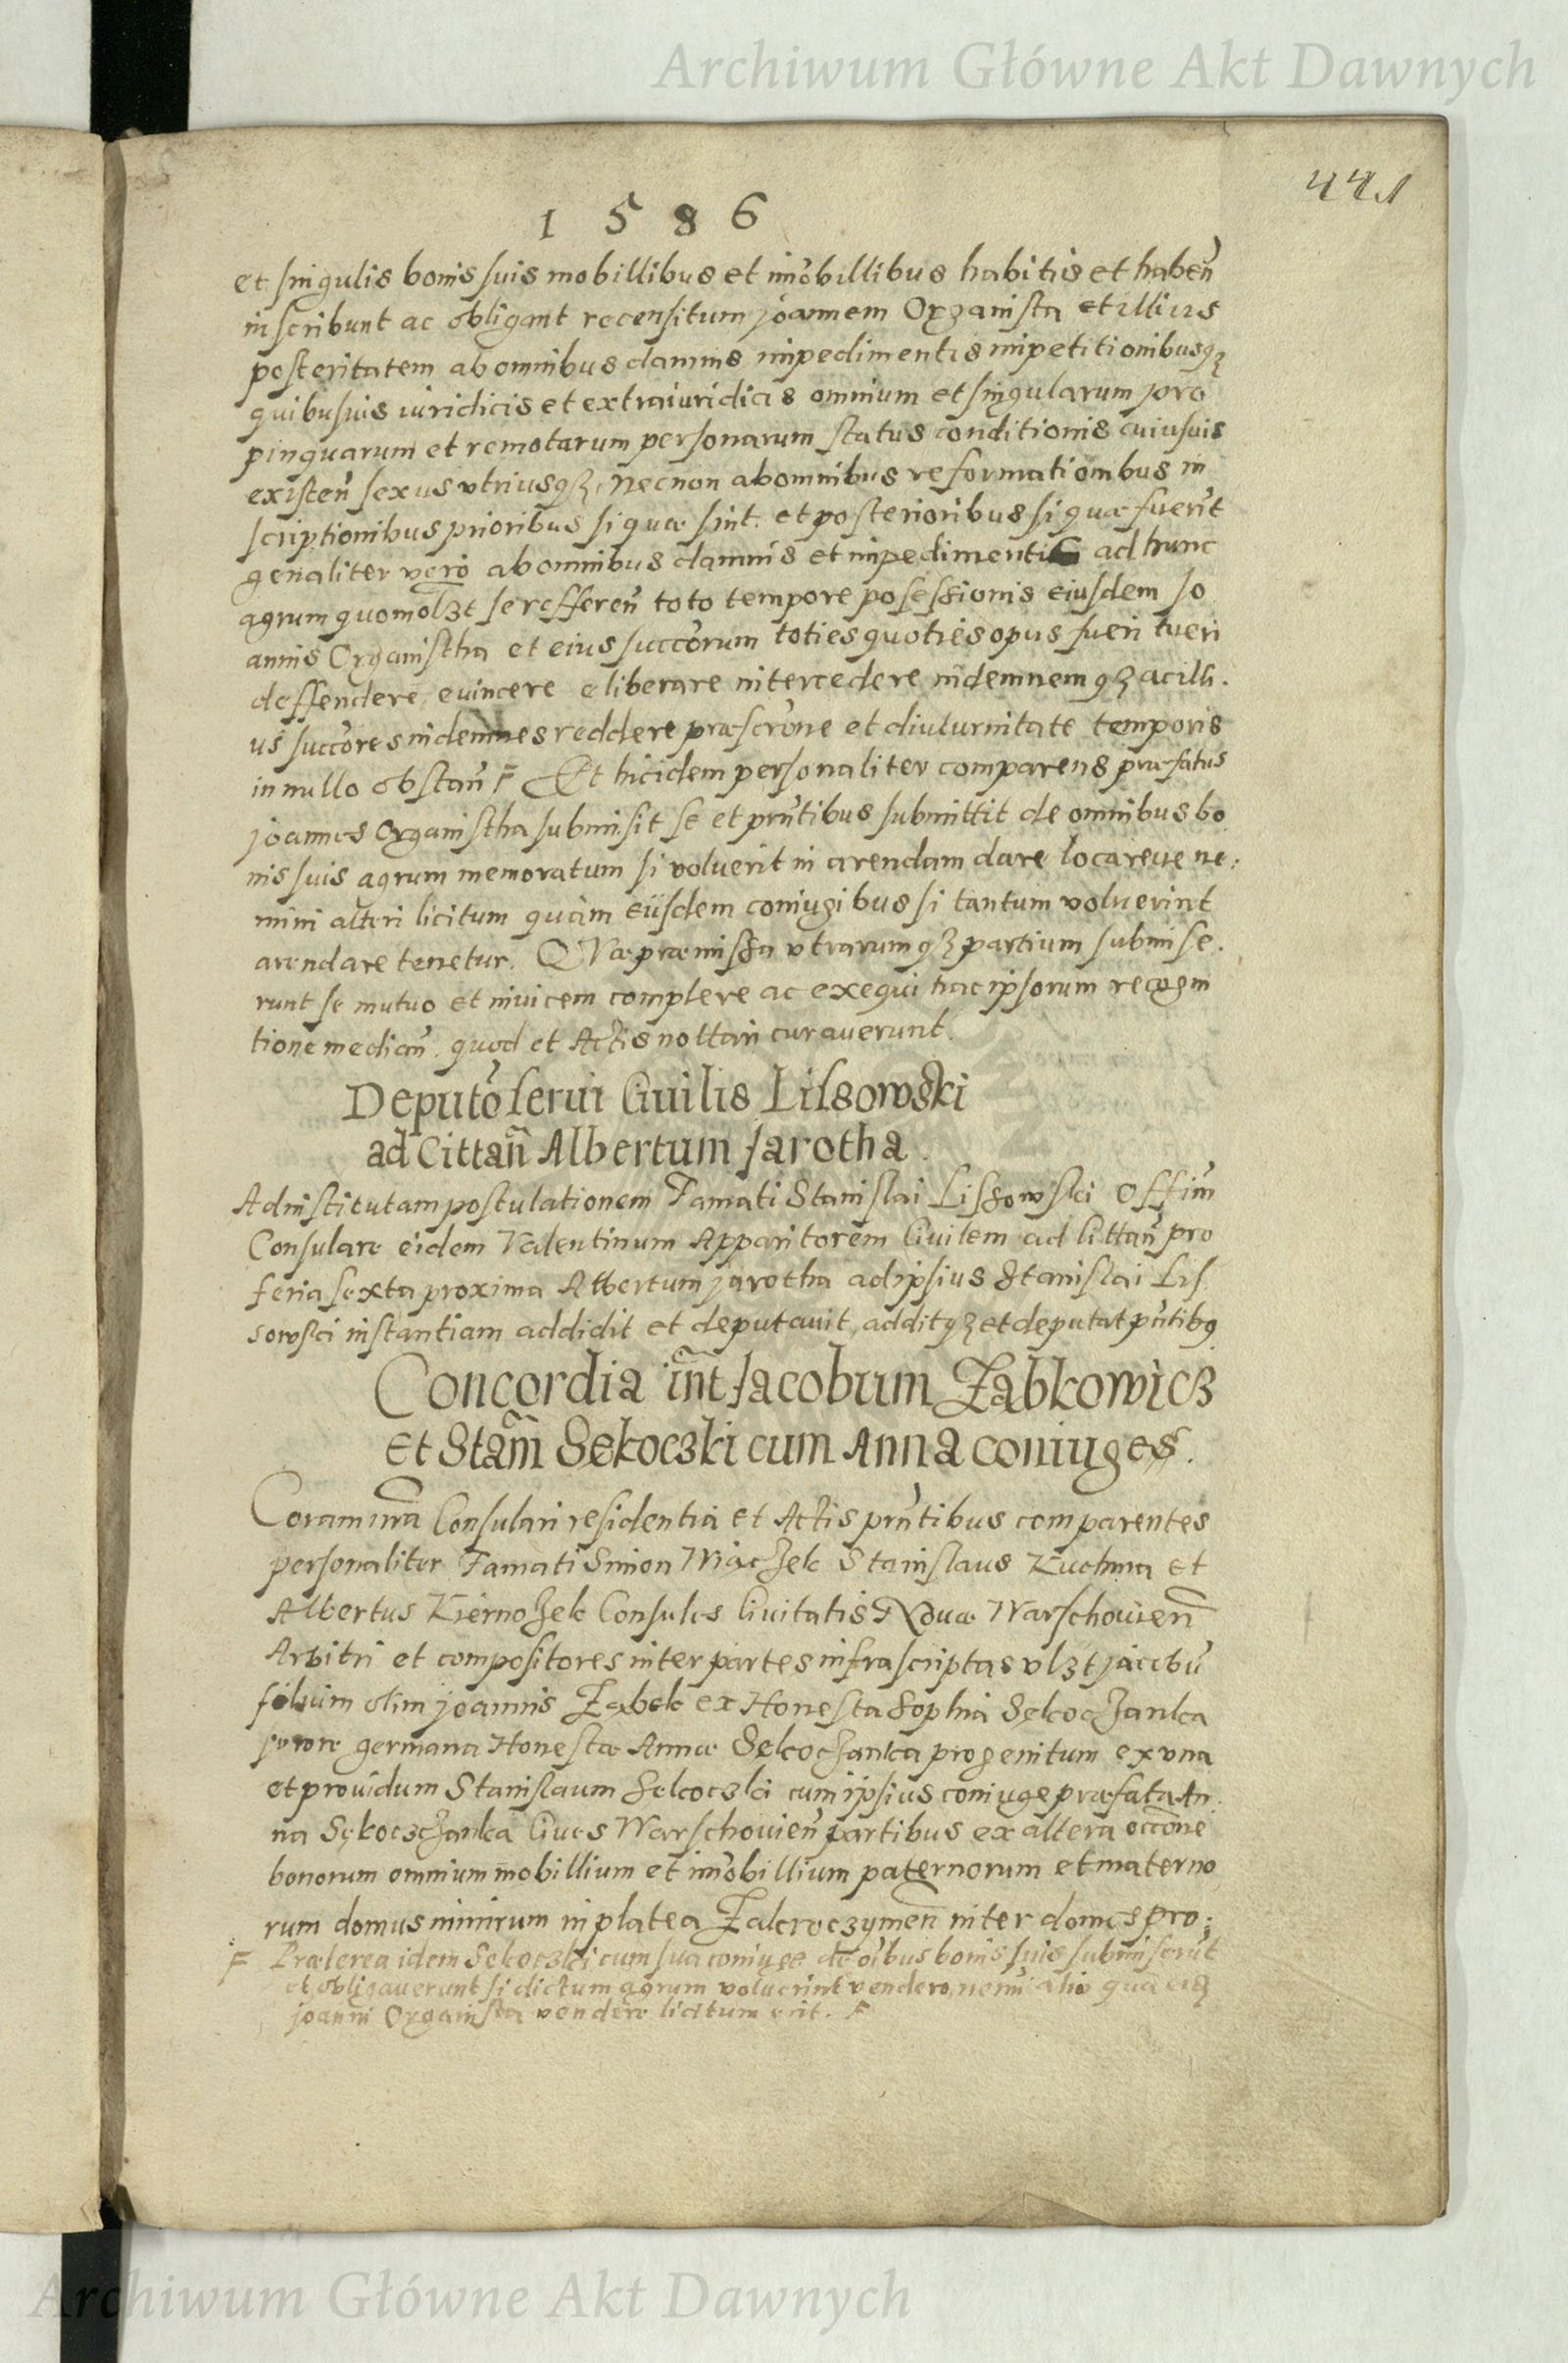 Archiwum Główne Akt Dawnych
441
1 5 8 6
et singulis bonis suis mobillibus et im̃obillibus habitis et habeñ
inscribunt ac obligant recensitum joannem Organista et illius
posteritatem ab omnibus damnis impedimentis impetitionibusqȝ
quibusuis iuridicis et extraiuridicis omnium et singularum pro
pinquarum et remotarum personarum status conditionis cuiusuis
existeñ sexus vtriusqȝ, necnon ab omnibus reformationibus in
scriptionibus prioribus si quæ sint. et posterioribus si quæ fuerĩt
genaliter vero ab omnibus damnis et impedimentis ad hunc
agrum quomolȝt se reffereñ toto tempore posessionis eiusdem Jo
annis Organistha et eius succorum toties quoties opus fueri tueri
deffendere, euincere eliberare intercedere indemnemqȝ ac illi.
us succores indemnes reddere præscrõne et diuturnitate temporis
in nullo obstañ F Et hic idem personaliter comparens præfatus
joannes Organistha submisit se et prñtibus submittit de omnibus bo
nis suis agrum memoratum si voluerit in arendam dare locareue ne:
mini alteri licitum quàm eiisdem coniugibus si tantum voluerint
arendare tenetur. QVæ præmissa vtrarumqȝ partium submise.
runt se mutuo et inuicem complere ac exequi hac ipsorum recogni
tione mediañ. quod et Actis nottari curauerunt.
Deputõ serui Ciuilis Lissowski
ad Cittañ Albertum Jarotha.
Ad institutam postulationem Famati Stanislai Lissowski Offim̃
Consulare eidem Valentinum Apparitorem Ciuilem ad Cittañ pro
feria sexta proxima Albertum jarotha ad ipsius Stanislai Lis
sowski instantiam addidit et deputauit, additqȝ et deputat prñtibꝯ
Concordia int̃ Jacobum Ząbkowicz
et Stam̃ Sękoczki cum Anna coniuges.
Coram nrã Consulari residentia et Actis prñtibus comparentes
personaliter Famati Simon Wiączek Stanislaus Kuchna et
Albertus Kiernozek Consules Ciuitatis Nouæ Warschouieñ
Arbitri et compositores inter partes infrascriptas vlȝt jacobũ
filium olim joannis Ząbek ex Honesta Sophia Sękoczanka
sorore germana Honestæ Annæ Sękoczanka progenitum ex vna
et prouidum Stanislaum Sękoczki cum ipsius coniuge præfata An
na Sękoczczanka Ciues Warschouieñ partibus ex altera occõne
bonorum omnium mobillium et im̃obillium paternorum et materno
rum domus nimirum in platea Zakroczymeñ inter domos pro:
F Præterea idem Sękoczki cum sua coniuge de oĩbus bonis suis submiserũt
et obligauerunt si dictum agrum voluerint vendere, nemĩ alio quã eiȝ
joanni Organista vendere licitum erit. F
Archiwum Główne Akt Dawnych